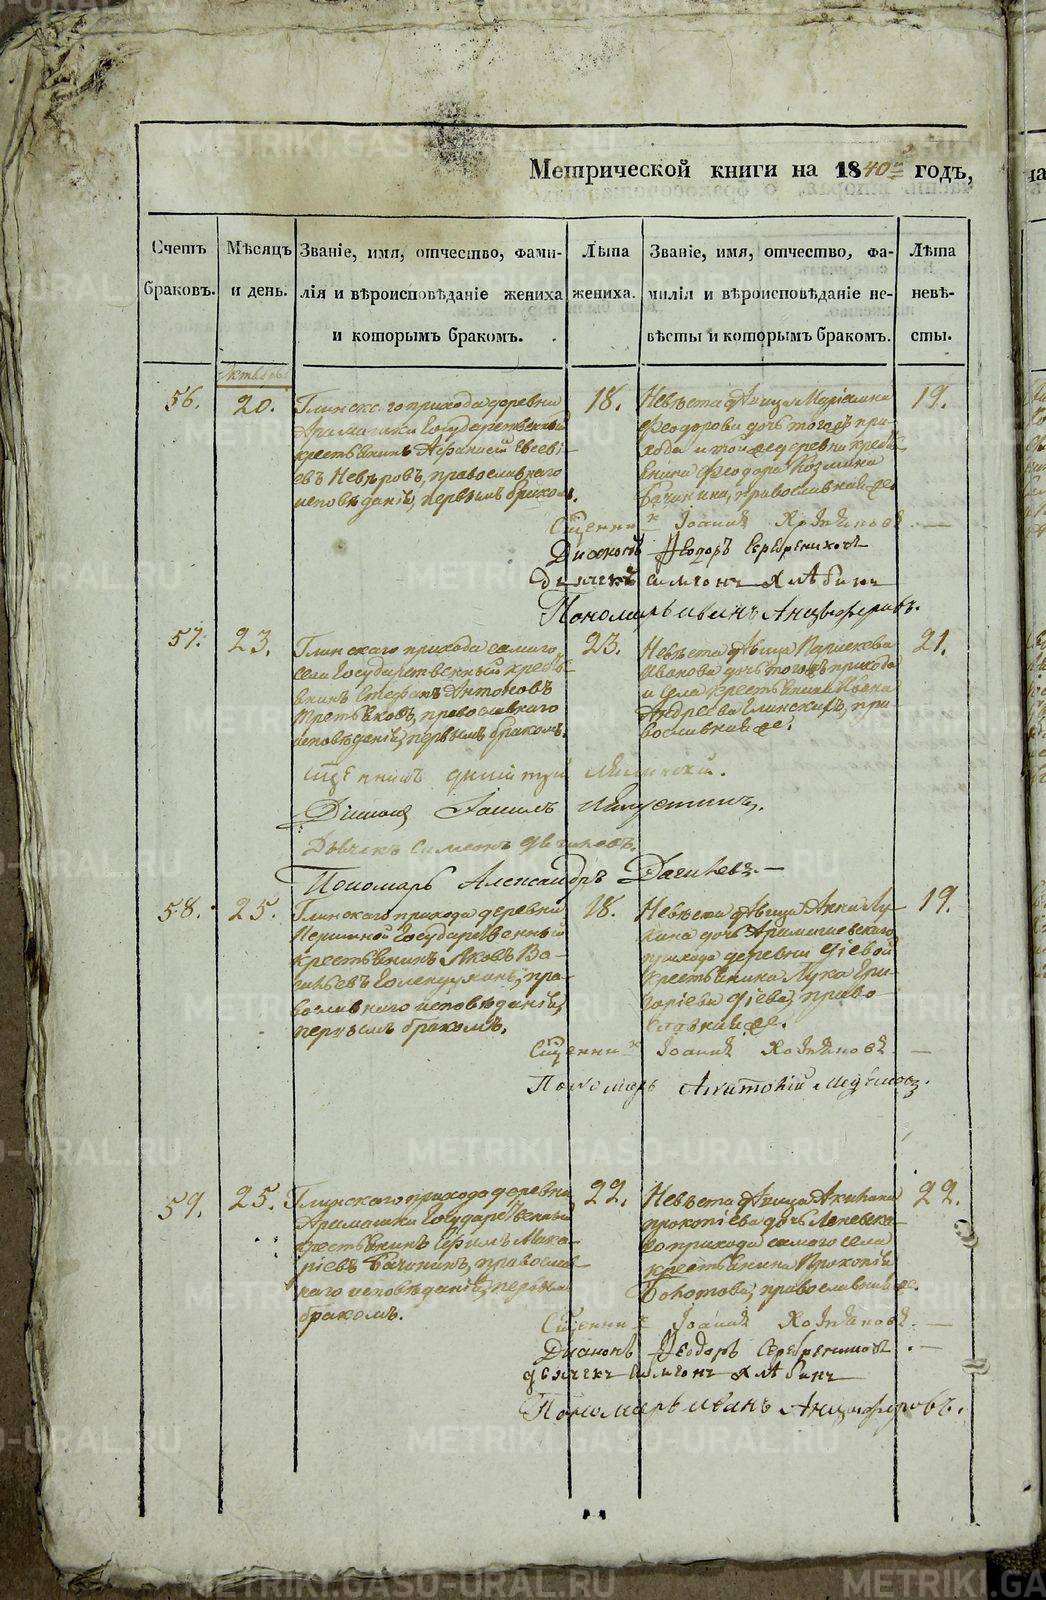 Метрической книги на 1840й годъ,
Счетъ браковъ.
Мѣсяцъ и день.
Званіе, имя, отчество, фами-
лія и вѣроисповѣданіе жениха
и которымъ бракомъ.
Лѣта жениха.
Званіе, имя, отчество, фа-
милія и вѣроисповѣданіе не-
вѣсты и которымъ бракомъ.
Лѣта невѣ-
сты.
Октябрь
56.
20.
Глинскаго прихода деревни
Арамашки Государственный
крестьянинъ Афанасій Евсеві-
евъ Невѣровъ, православнаго
исповѣданія, первымъ бракомъ.
18.
Невѣста дѣвица Маріамна
Феодорова дочь тогожъ при-
хода и тойжедеревни кресть-
янина Феодора Козмина
Бачинина, православнаяже.
19.
Священникъ Іоаннъ
Діаконъ Феодоръ Серебрениковъ
Дьячекъ Симеонъ Хлѣбинъ
Пономарь Иванъ Анцыферовъ.
57.
23.
Глинскаго прихода самаго
села Государственный кресть-
янинъ Стефанъ Антоновъ
Третьяковъ, православнаго
исповѣданія, первымъ бракомъ.
23.
Невѣста дѣвица Параскева
Иванова дочь тогожъ прихода
и села крестьянина Ивана
Андреева Глинскихъ, пра-
вославнаяже.
21.
Священникъ Димитрій
Діаконъ
Дьячекъ Симеонъ
Пономарь Александръ
58.
25.
Глинскаго прихода деревни
Першиной Государственный
крестьянинъ Яковъ Ва-
сильевъ Голендухинъ, пра-
вославнаго исповѣданія,
первымъ бракомъ.
18.
Невѣста дѣвица Анна Лу-
кина дочь Арамашевскаго
прихода деревни Діевой
крестьянина Лука Гри-
горіева Діева, право-
славнаяже.
19.
Священникъ Іоаннъ
Пономарь
59.
25.
Глинскаго прихода деревни
Арамашки Государственный
крестьянинъ Ефимъ Мака-
ріевъ Бачининъ, православ-
наго исповѣданія, первымъ
бракомъ.
22.
Невѣста дѣвица Акилина
Прокопіева дочь Леневска-
го прихода самого села
крестьянина Прокопія
православнаяже.
22.
Священникъ Іоаннъ
Діаконъ Феодоръ Серебрениковъ
Дьячекъ Симеонъ Хлѣбинъ
Пономарь Иванъ Анцыферовъ.
METRIKI.GASO-URAL.RU